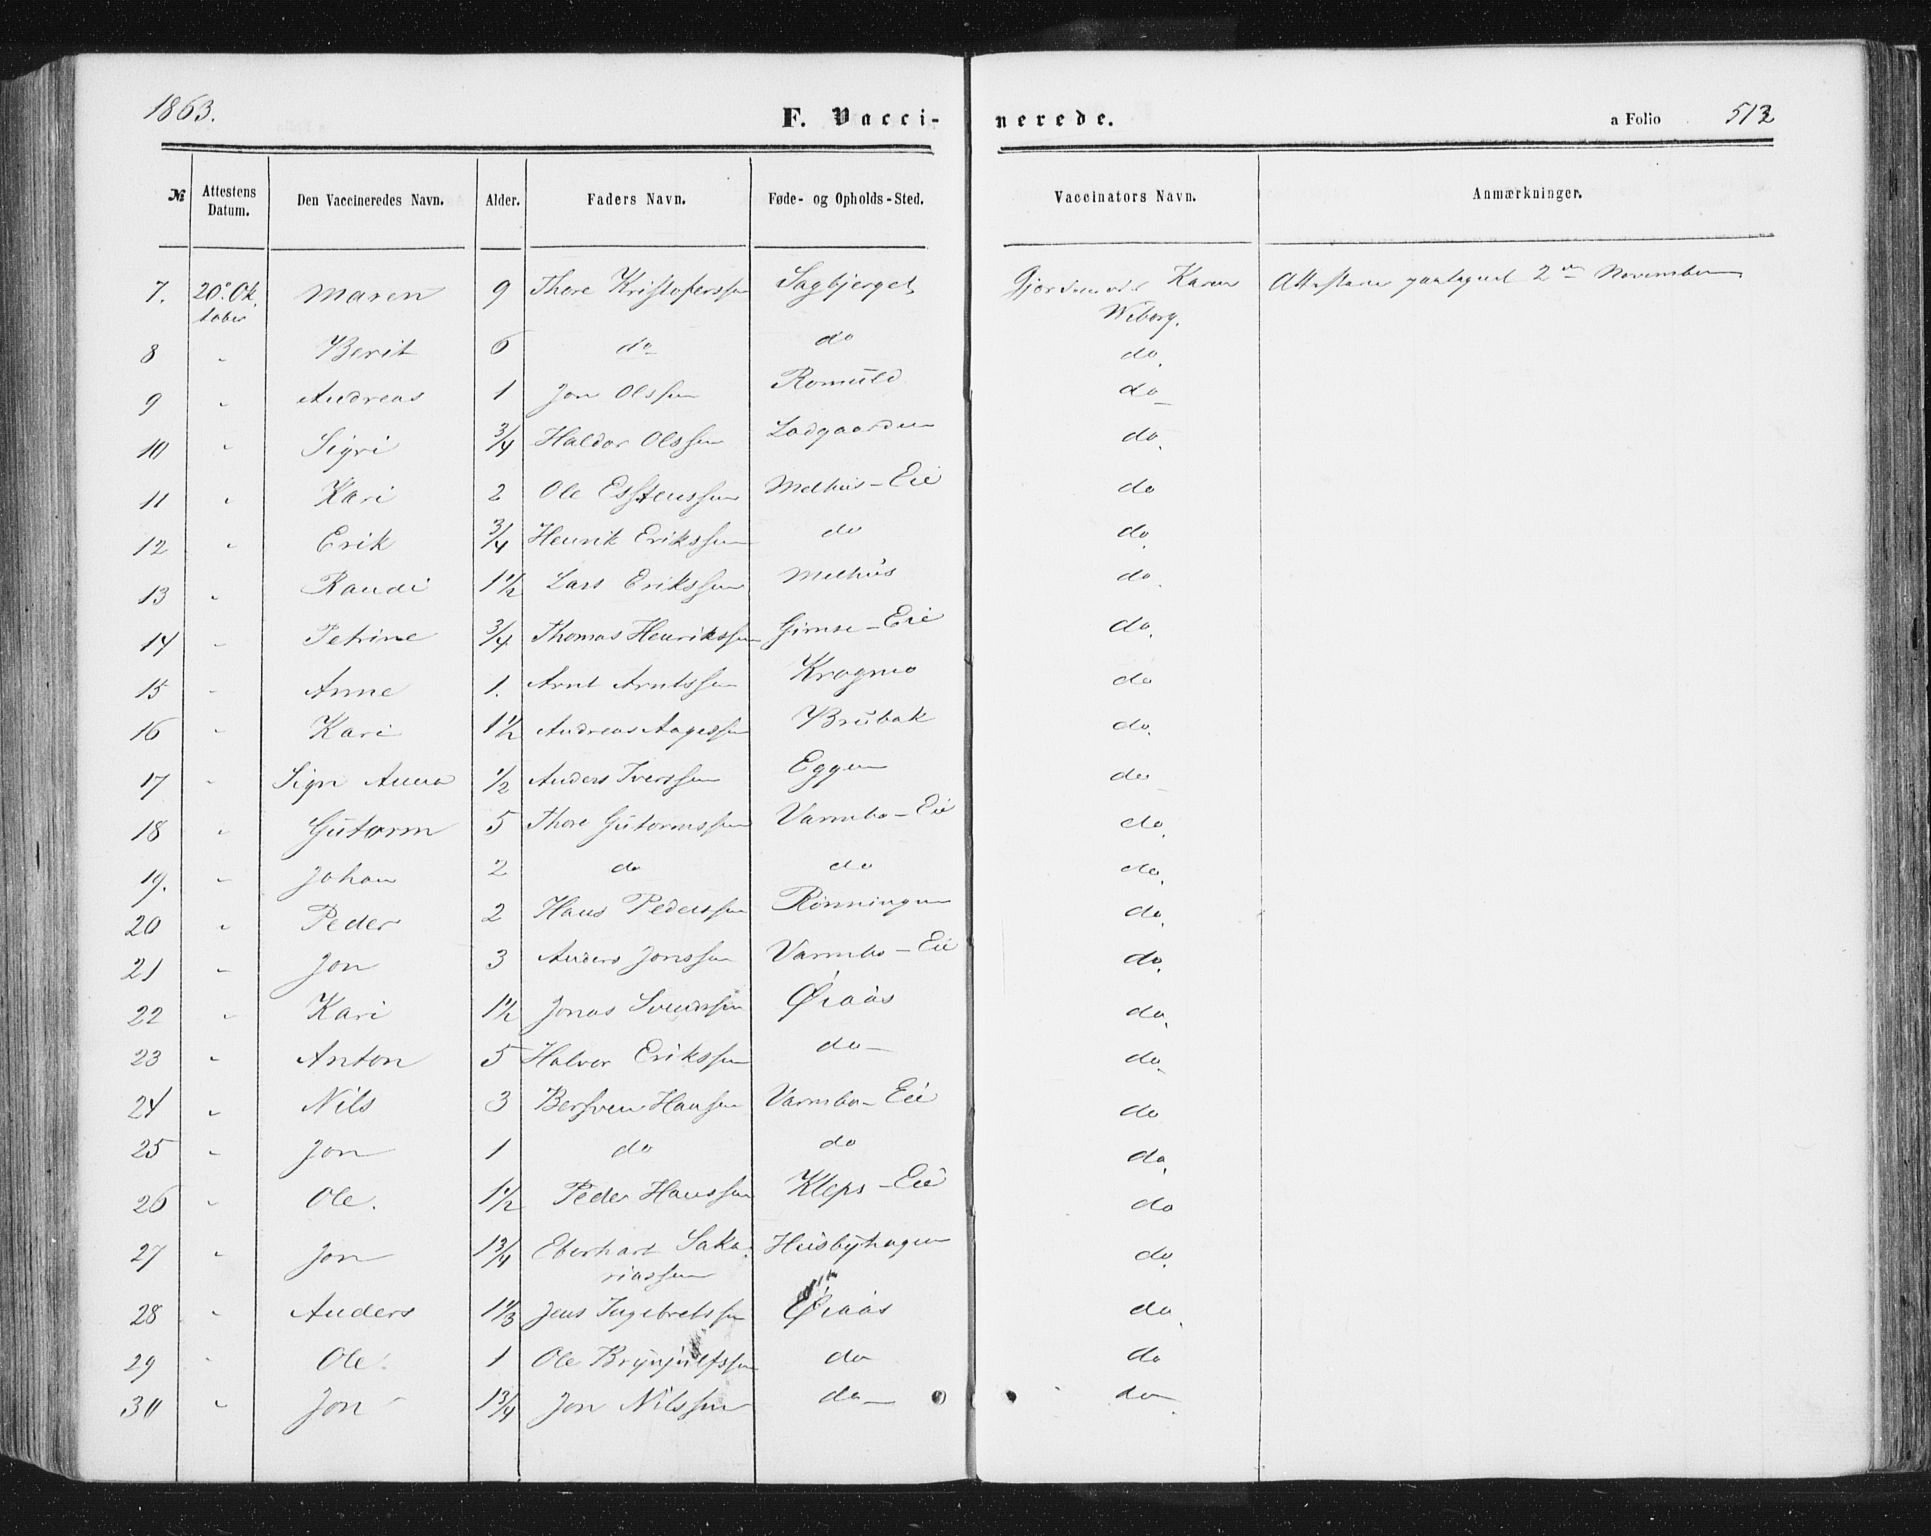 1863.
F. Vacci- nerede. a Folio 513
№ Attestens Datum. Den Vaccineredes Navn. Alder. Faders Navn. Føde- og Opholds-Sted. Vaccinators Navn. Anmærkninger.
7. 20. Ok- Maren 9 Thore Kristoferssen Sagbjerget Gjordemoder Karen Attesten paategnet 2den November
tober Wiborg.
8 " Berit 6 do do do.
9 " Andreas 1 Jon Olssen Romuld do
10 " Sigri 3/4 Haldor Olssen Ladgaarden do.
11 " Kari 2 Ole Estenssen Melhus-Eie do
12 " Erik 3/4 Henrik Erikssen do do.
13 " Randi 1 1/2 Lars Erikssen Melhus do.
14 " Petrine 3/4 Thomas Henrikssen Gimse-Eie do.
15 " Anne 1. Arnt Arntssen Krogmo do
16 " Kari 1 1/2 Andreas Aagessen Brubak do.
17 " Sigri Anna 1/2 Anders Iverssen Eggen do
18 " Gutorm 5 Thore Gutormssen Varmbo-Eie do.
19. " Johan 2 do do do.
20 " Peder 2 Hans Pederssen Rønningen do.
21 " Jon 3 Anders Jonssen Varmbo-Eie do.
22 " Kari 1 1/2 Jonas Svendssen Øiaas do.
23 " Anton 5 Halvor Erikssen do do.
24 " Nils 3 Bersven Hansen Varmbo-Eie do
25 " Jon 1 do do do.
26 " Ole. 1 1/2 Peder Hanssen Kleps-Eie do
27 " Jon 1 3/4 Eberhart Saka- Husbyhagen do.
riassen
28 " Anders 1 1/3 Jens Ingebretssen Øiaas do.
29 " Ole. 1 Ole Brynjulfssen do do
30 " Jon 1 3/4 Jon Nilssen do do